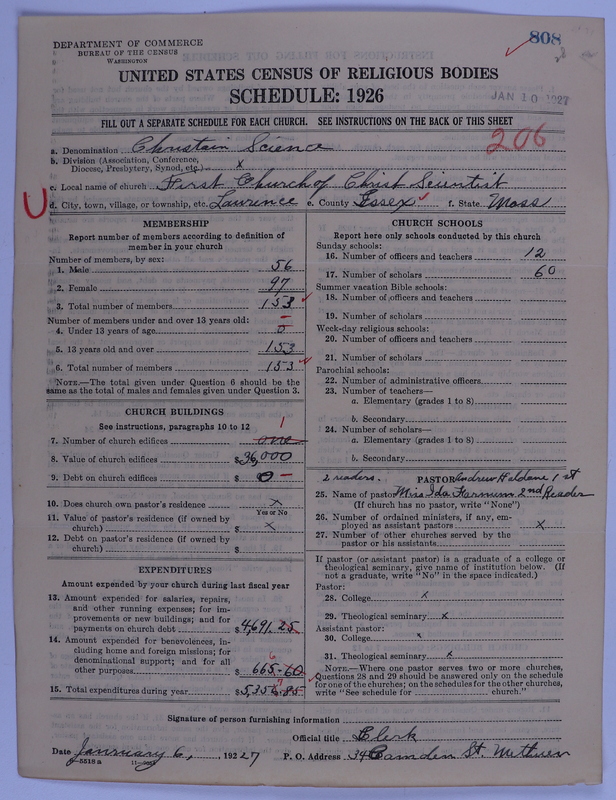 DEPARTMENT OF COMMERCE
BUREAU OF THE CENSUS
WASHINGTON
808
UNITED STATES CENSUS OF RELIGIOUS BODIES
SCHEDULE: 1926
JAN 10 1927
FILL OUT A SEPARATE SCHEDULE FOR EACH CHURCH. SEE INSTRUCTIONS ON THE BACK OF THIS SHEET
206
a. Denomination Christain Science
b. Division (Association, Conference, Diocese, Presbytery, Synod, etc.) x
c. Local name of church First Church of Christ Scientist
U
d. City, town, village, or township, etc. Lawrence e. County Essex f. State Mass
MEMBERSHIP
Report number of members according to definition of
member in your church
Number of members, by sex:
1. Male 56
2. Female 97
3. Total number of members 153
Number of members under and over 13 years old:
4. Under 13 years of age 0
5. 13 years old and over 153
6. Total number of members 153
NOTE.—The total given under Question 6 should be the
same as the total of males and females given under Question 3.
CHURCH BUILDINGS
See instructions, paragraphs 10 to 12
7. Number of church edifices one 1
8. Value of church edifices $36,000
9. Debt on church edifices $ 0 —
10. Does church own pastor's residence x
Yes or No
11. Value of pastor's residence (if owned by
church) $ x
12. Debt on pastor's residence (if owned by
church) $
EXPENDITURES
Amount expended by your church during last fiscal year
13. Amount expended for salaries, repairs,
and other running expenses; for im-
provements or new buildings; and for
payments on church debt $4,691.25
14. Amount expended for benevolences, in-
cluding home and foreign missions; for
denominational support; and for all
other purposes $ 665.60
6
15. Total expenditures during year $5,356.85
7
CHURCH SCHOOLS
Report here only schools conducted by this church
Sunday schools:
16. Number of officers and teachers 12
17. Number of scholars 60
Summer vacation Bible schools:
18. Number of officers and teachers
19. Number of scholars
Week-day religious schools:
20. Number of officers and teachers
21. Number of scholars
Parochial schools:
22. Number of administrative officers
23. Number of teachers—
a. Elementary (grades 1 to 8)
b. Secondary
24. Number of scholars—
a. Elementary (grades 1 to 8)
b. Secondary
2 readers. PASTOR Andrew Haldane 1st
25. Name of pastor Miss Ida Farmum 2nd Reader
(If church has no pastor, write "None")
26. Number of ordained ministers, if any, em-
ployed as assistant pastors x
27. Number of other churches served by the
pastor or his assistants
If pastor (or assistant pastor) is a graduate of a college or
theological seminary, give name of institution below. (If
not a graduate, write "No" in the space indicated.)
Pastor:
28. College x
29. Theological seminary x
Assistant pastor:
30. College x
31. Theological seminary x
NOTE.—Where one pastor serves two or more churches,
Questions 28 and 29 should be answered only on the schedule
for one of the churches; on the schedules for the other churches,
write "See schedule for church."
Signature of person furnishing information
Official title Clerk
Date January 6, 192 27 P. O. Address Camden St. Methuen
5518 a